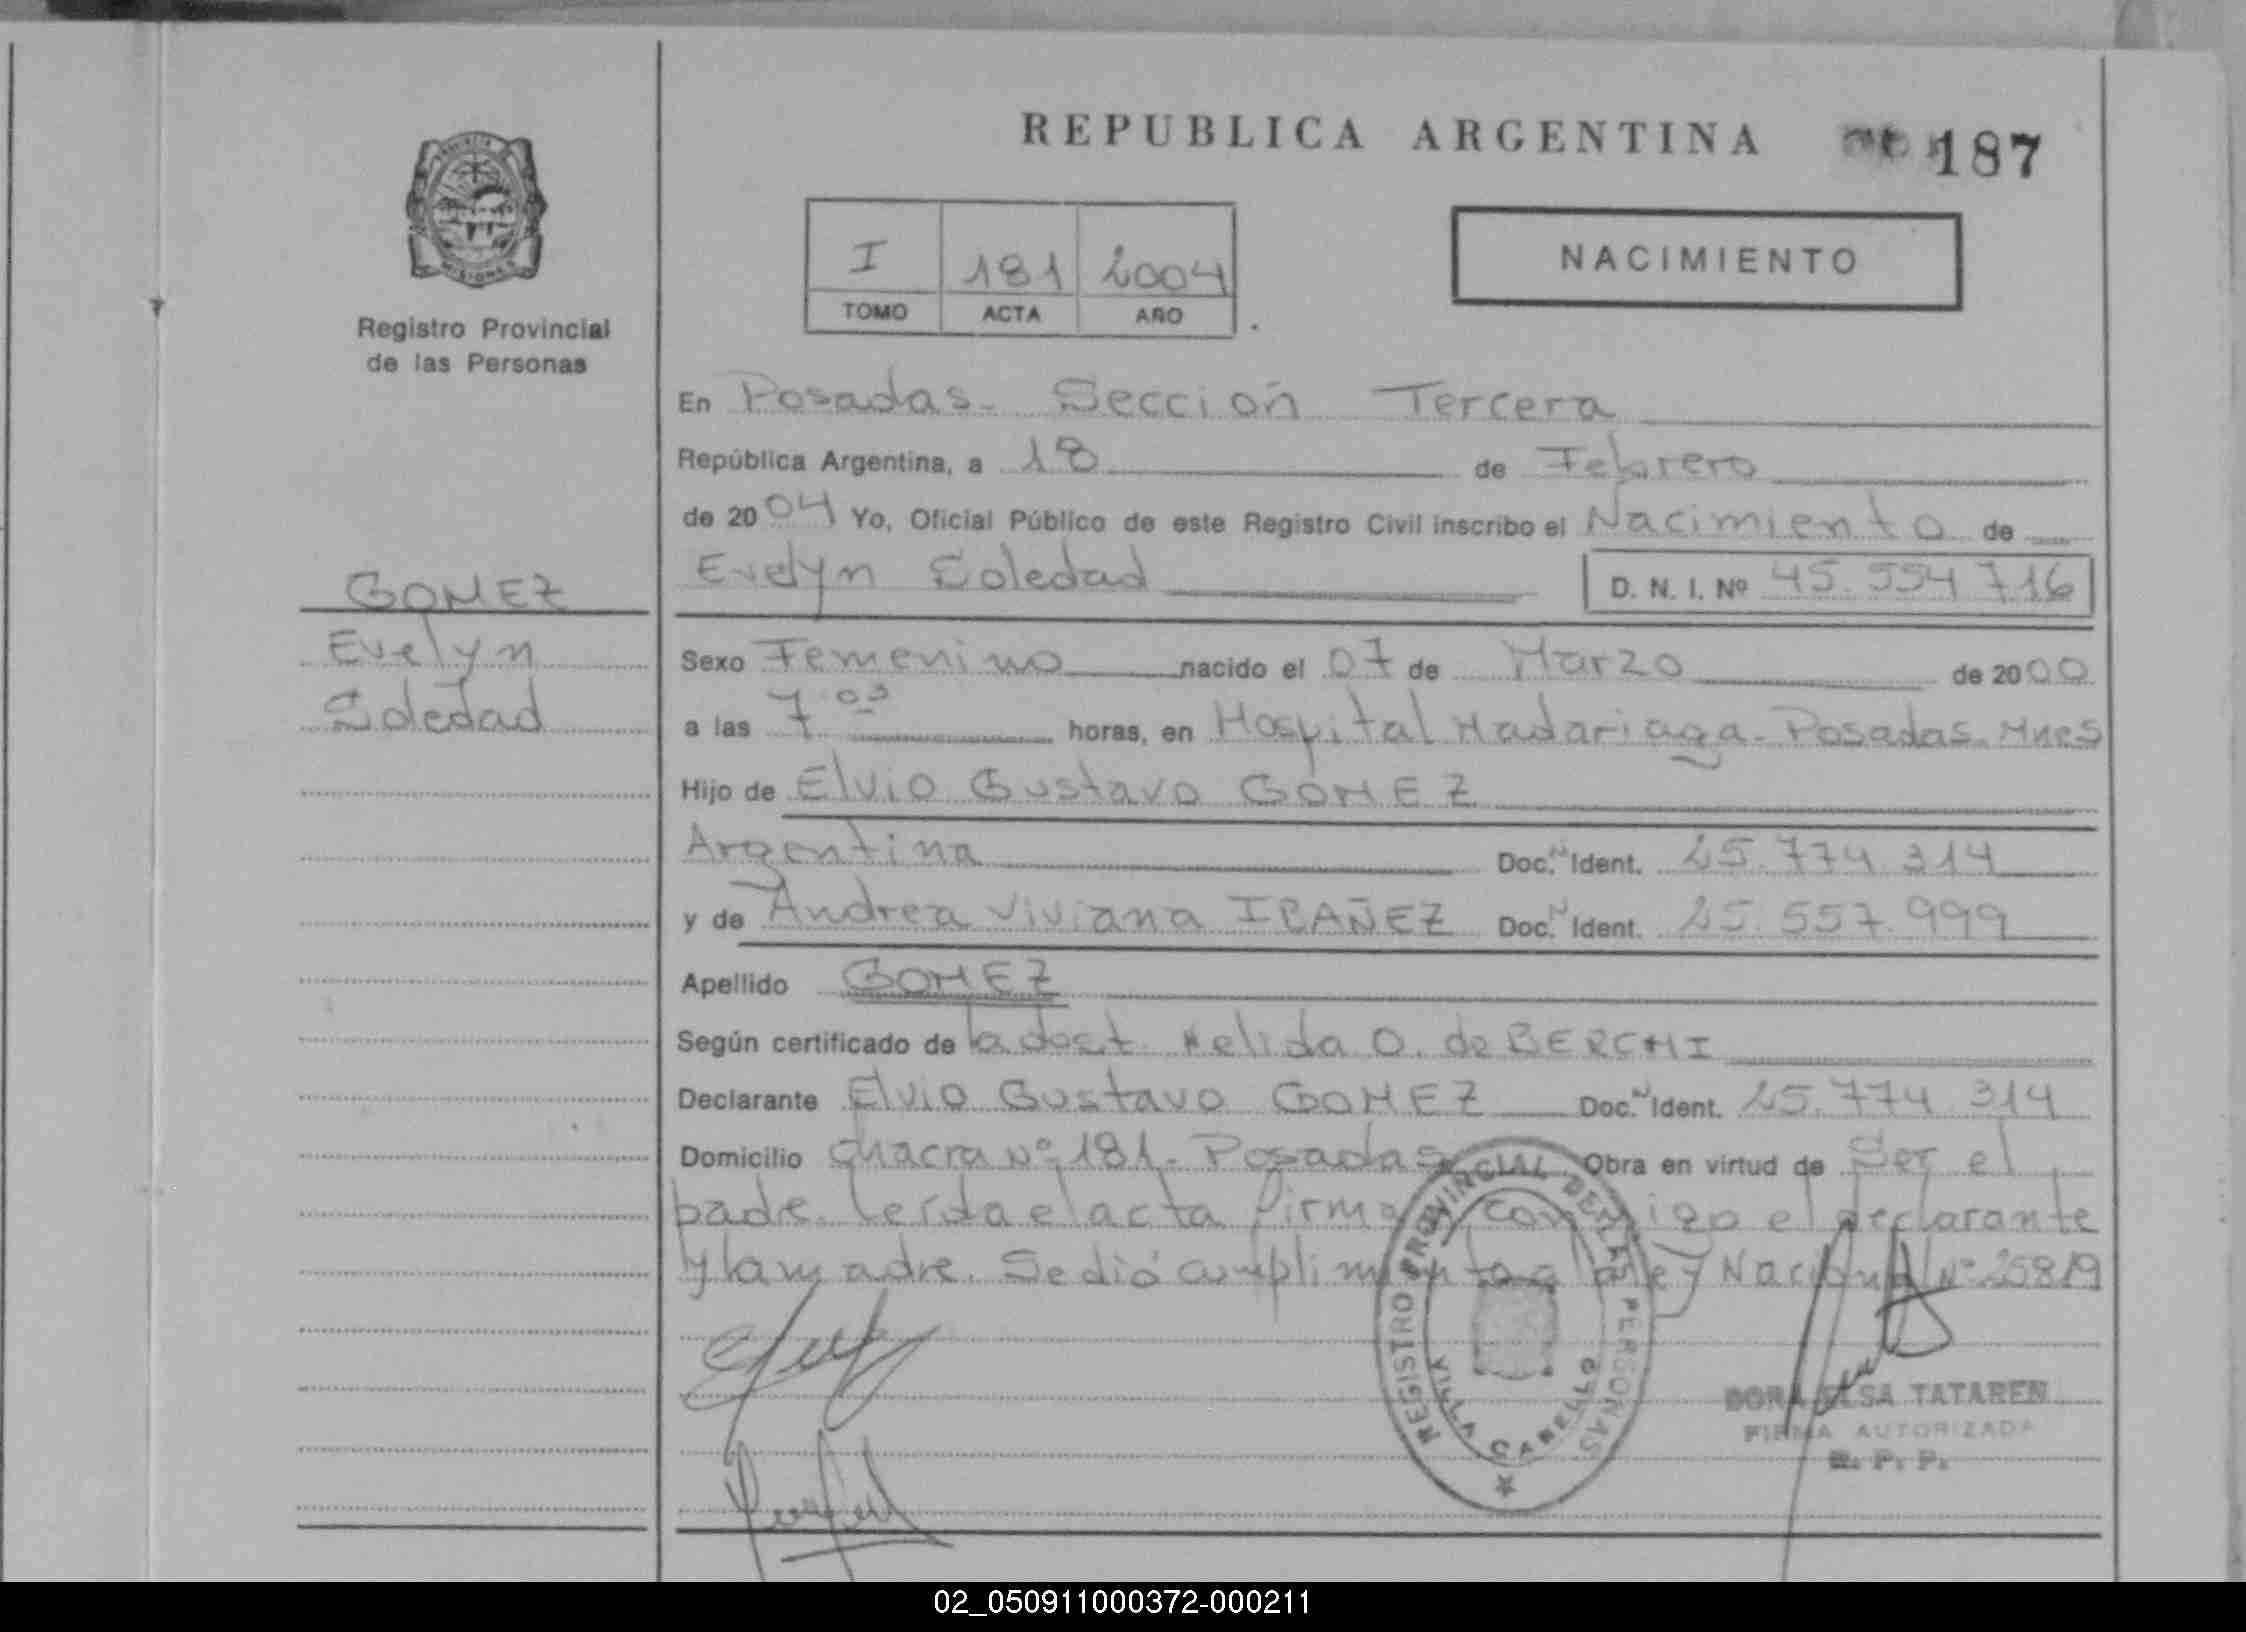 REPUBLICA ARGENTINA 187
PROVINCIA
MISIONES
Registro Provincial
de las Personas
I 181 2004
TOMO ACTA AÑO
NACIMIENTO
En Posadas. Sección Tercera
República Argentina, a 18 de Febrero
de 2004 Yo, Oficial Público de este Registro Civil inscribo el Nacimiento de
Evelyn Soledad D. N. I. Nº 45.554 716
GOMEZ
Evelyn
Soledad
Sexo Femenino nacido el 07 de Marzo de 2000
a las 7 03 horas, en Hospital Madariaga. Posadas. Mnes
Hijo de Elvio Gustavo GOMEZ
Argentina Doc. Ident. 25.774.314
y de Andrea Viviana IBAÑEZ Doc. Ident. 25.557.999
Apellido GOMEZ
Según certificado de la doct. Nelida O. de BERCHI
Declarante Elvio Gustavo GOMEZ Doc. Ident. 25.774.314
Domicilio chacra Nº 181. Posadas Obra en virtud de Ser el
padre. leída el acta firma conmigo el declarante
y la madre. Se dió cumplimiento a la ley Nacional Nº 25819
REGISTRO PROVINCIAL DE LAS PERSONAS
VILLA CABELLO
DORA ELSA TATAREN
FIRMA AUTORIZADA
R. P. P.
02_050911000372-000211